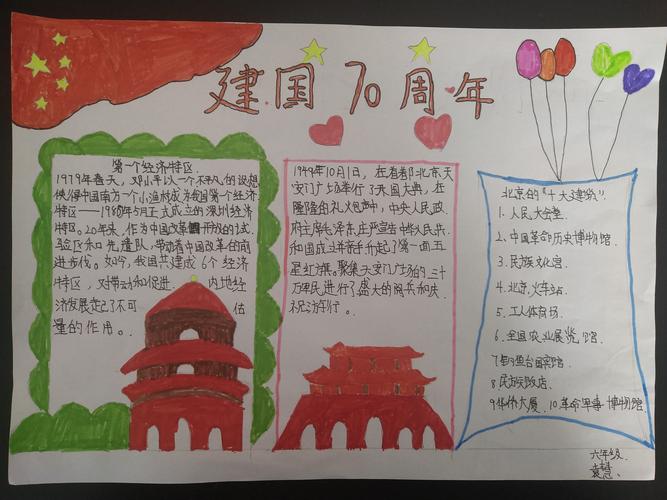 建国70周年
第一个经济特区
1979年春天，邓小平以一个不平凡的设想
使得中国南方一个小渔村成为我国第一个经济
特区——1980年5月正式成立的深圳经济
特区。20年来，作为中国改革开放的试
验区和先遣队，带动着中国改革的前
进步伐。如今，我国共建成6个经济
特区，对带动和促进 内地经
济发展起了不可 估
量的作用。
1949年10月1日，在首都北京天
安门广场举行了开国大典，在
隆隆的礼炮声中，中央人民政
府主席毛泽东庄严宣告中华人民共
和国成立并亲手升起了第一面五
星红旗。聚集天安门广场的三十
万军民进行了盛大的阅兵和庆
祝游行。
北京的“十大建筑”
1、人民大会堂
2、中国革命历史博物馆
3、民族文化宫
4、北京火车站
5、工人体育场
6、全国农业展览馆
7钓鱼台国宾馆
8民族饭店
9华侨大厦 10革命军事博物馆
六年级
袁慧